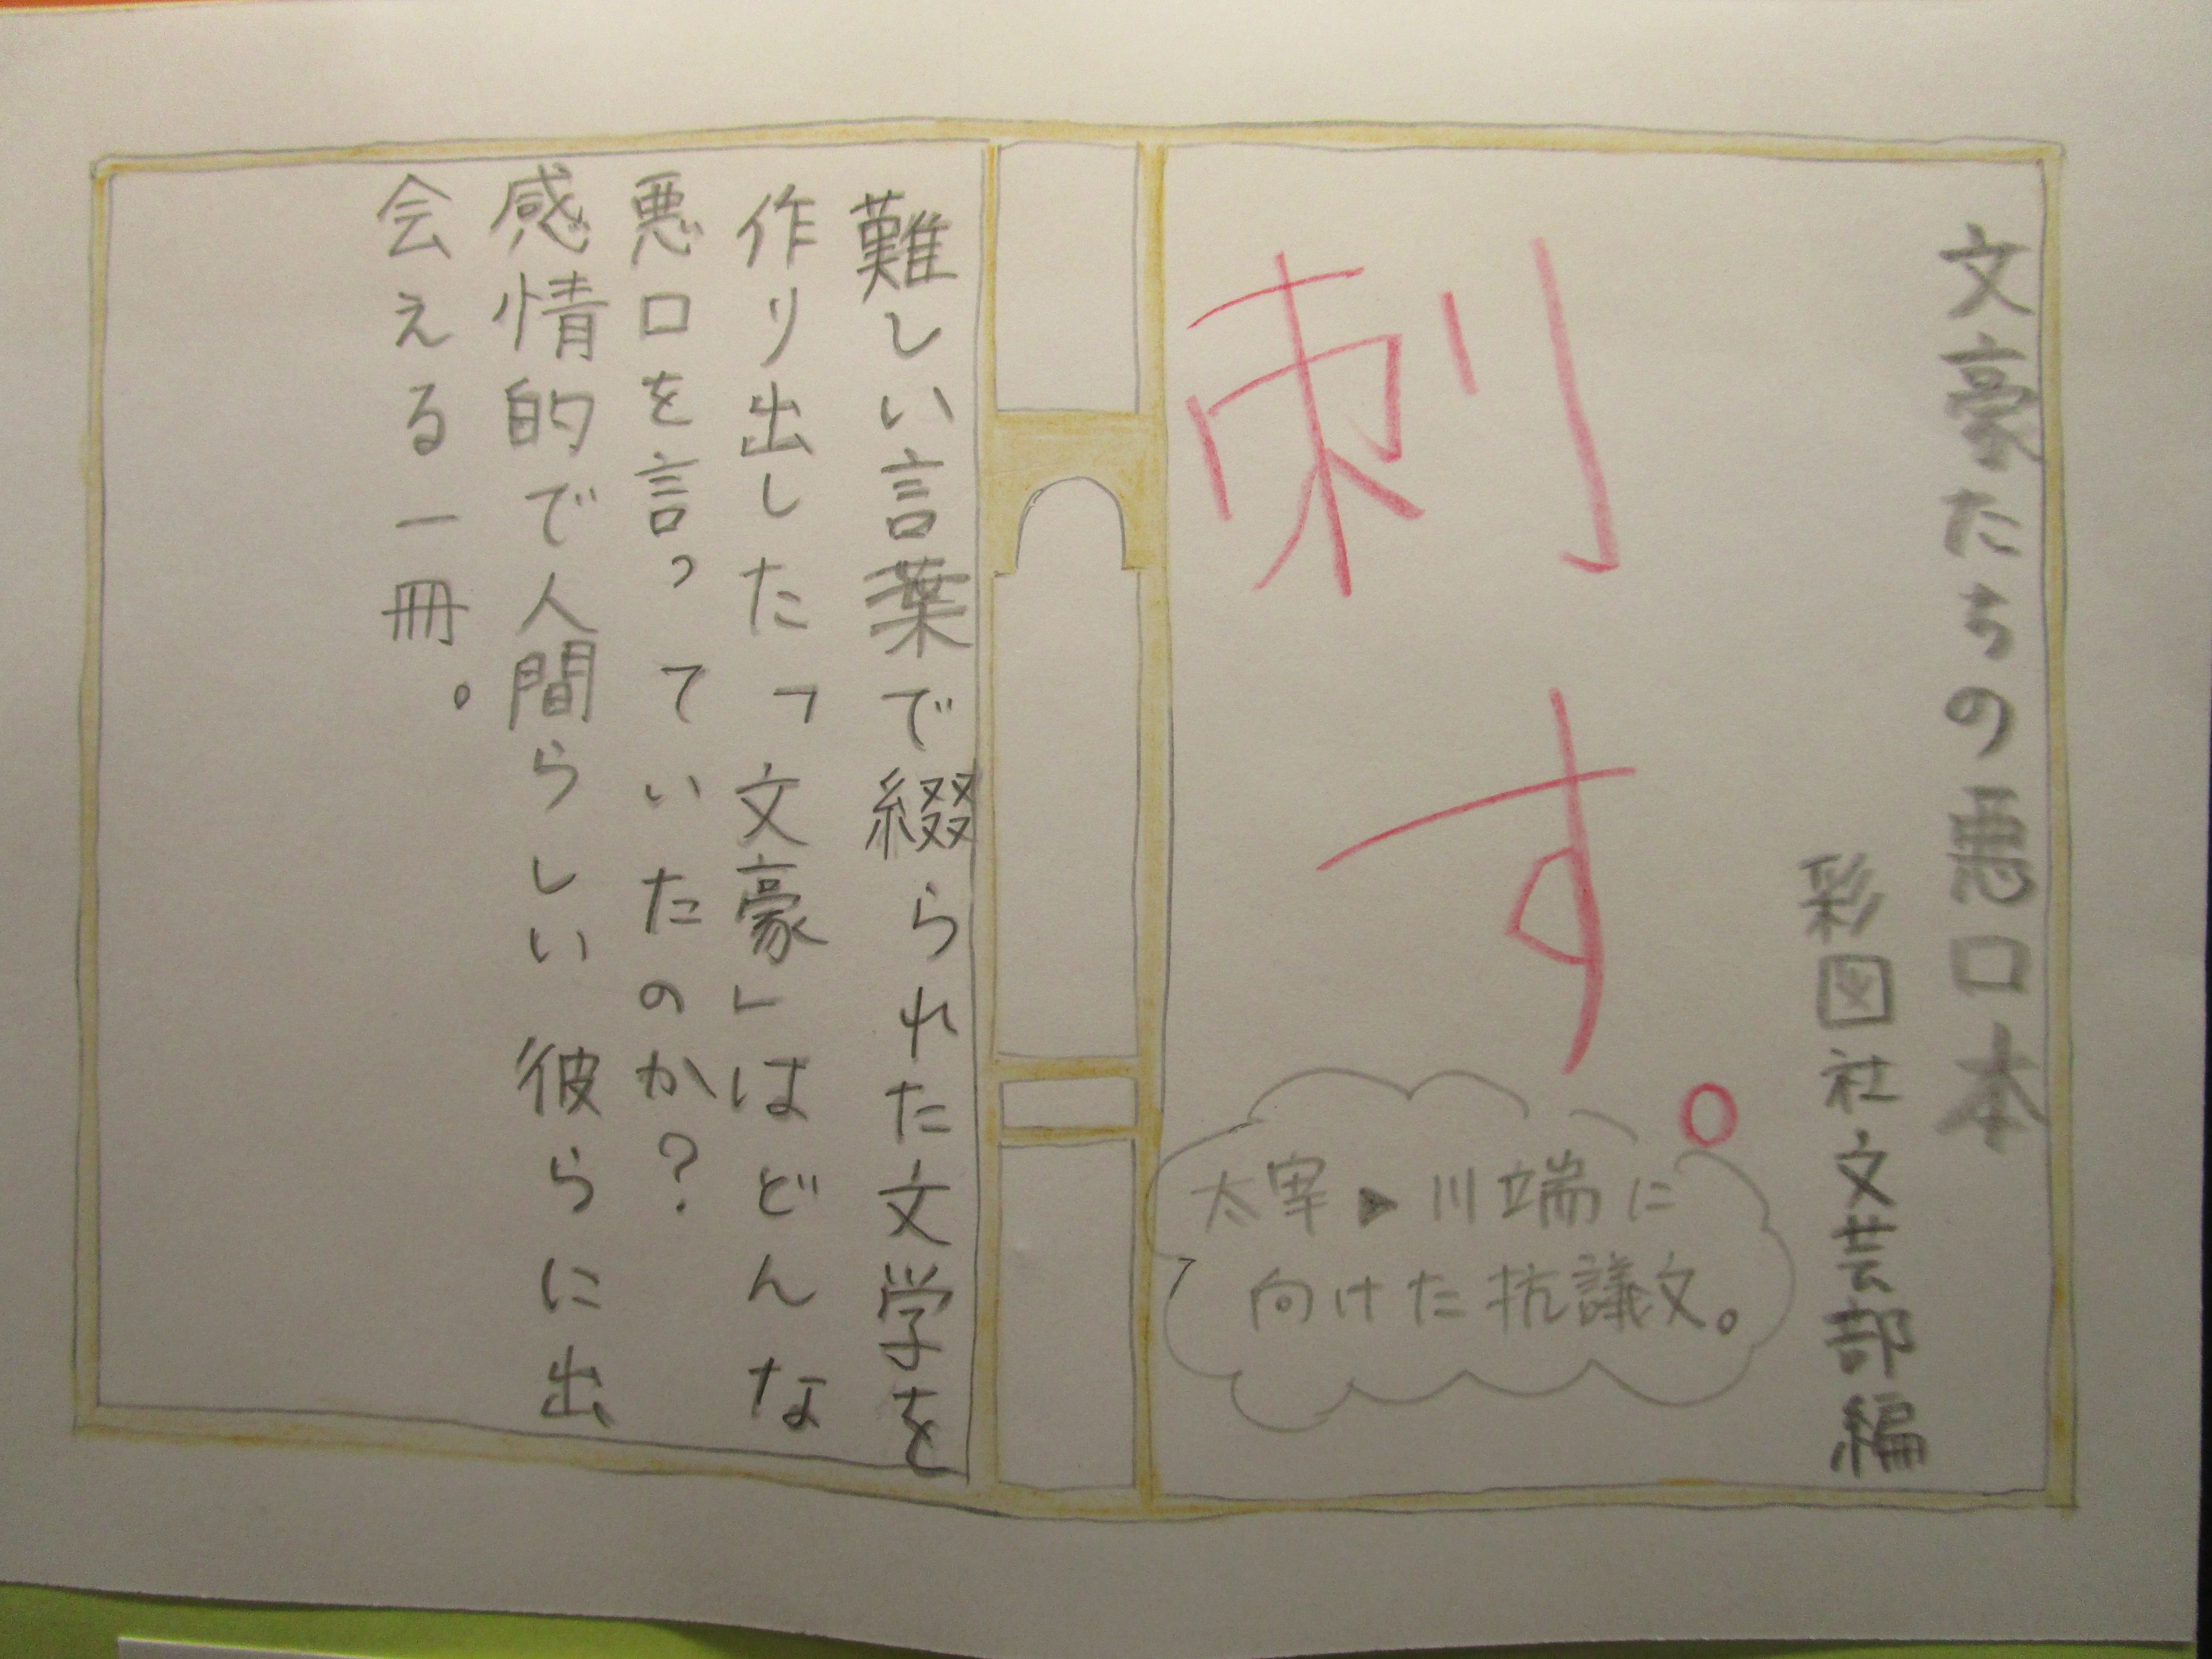 文豪たちの悪口本
彩図社文芸部編
刺す。
太宰▶川端に
向けた抗議文。
難しい言葉で綴られた文学を
作り出した「文豪」はどんな
悪口を言っていたのか？
感情的で人間らしい彼らに出
会える一冊。